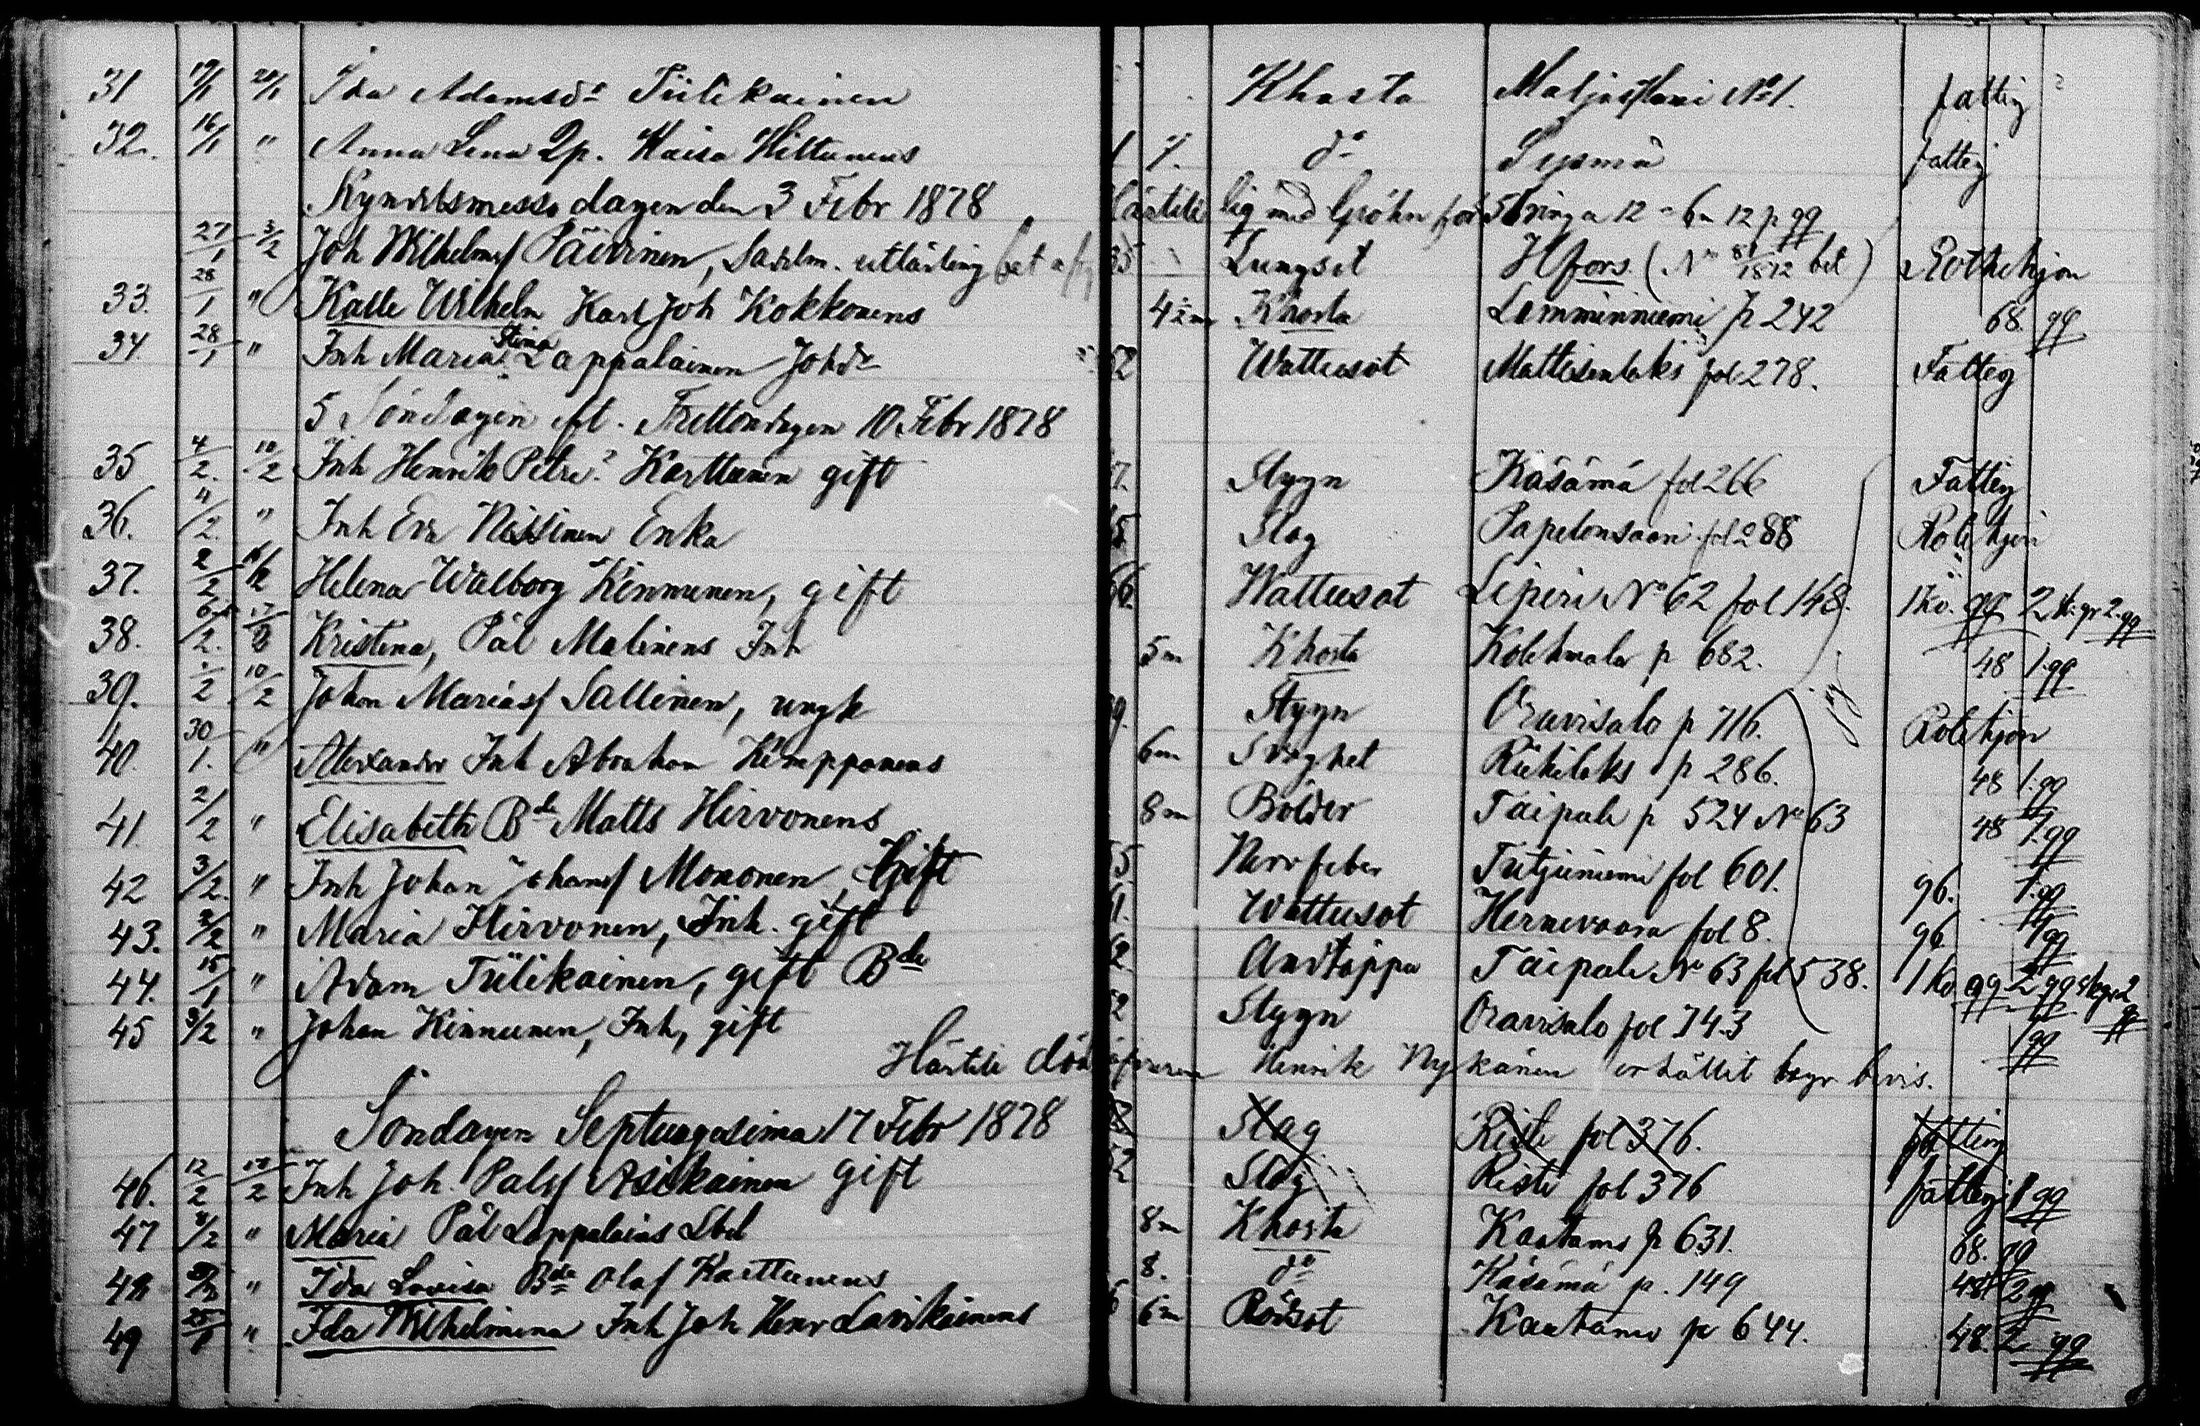 31 19/1 20/1 Ida Adamsdr Tiilikainen Khosta Maljasalmi No 1. fattig
32. 16/1 " Anna Lena Qp. Maisa Hiltunens 1 7. do Sysmä fattig
Kyndelsmesso dagen den 3 Febr 1878
27/1 3/2 Joh Wilhelmsf Päivinen, Sadelm. utlärling 35 Lungsot Hfors. (No 81/1812 bet) Rotehjon
33. 28/1 " Kalle Wilhelm Karl Joh Kokkonens 4 1/2 m Khosta Lamminniemi p 242 68. gg
34 28/1 " Inh Maria Stina Lappalainen Johdr 52 Wattusot Mattisenlaks fol 278. Fattig
5 Söndagen eft. Trettondagen 10 Febr 1878
35 4/2. 10/2 Inh Henrik Petri? Karttunen gift 7. Stygn Käsämä fol 266 Fattig
36. 4/2. " Inh Eva Nissinen Enka 5 Slag Papelonsaari fol 288 Rotehjon
37. 2/2 Helena Walborg Kinnunen, gift 66. Wattusot Liperi No 62 fol 148. 1 ko. gg 2 st. gr 2. gg
38. 6/2. 17/2 Kristina, Pål Malinens Inh 5 m Khosta Kolehmala p 682. 48 1. gg
39. 1/2 10/2 Johan Mariasf Sallinen, ungk 9. Stygn Oravisalo p 716. Rotehjon
40. 30/1. " Alexander Inh Abraham Kemppanens 6 m Svaghet Riihilaks p 286. 48 1. gg
41. 2/2 " Elisabeth Bde Matts Hirvonens 8 m Bölder Taipale p 524 No 63 48 1. gg
42 3/2. " Inh Johan Johansf Mononen, Gift 55 Nervfeber Tutjuniemi fol 601. 96. 1. gg
43. 3/2 " Maria Hirvonen, Inh. gift 1. Wattusot Hernevaara fol 8. 96 1 gg
44. 15/1 " Adam Tiilikainen, gift Bde 2 Andtäppa Taipale No 63 fol 538. 1 ko gg 2 gg st gr 2 gg
45 3/2 " Johan Kinnunen, Inh, gift 52 Stygn Oravisalo fol 743 1 gg
Härtill Henrik Nykänen erhållit begr bevis.
Söndagen Septuagesima 17 Febr 1878 Slag Riste fol 376. fattig
46. 12/2 17/2 Inh Joh. Palsf Asikainen gift 52 Slag Riste fol 376 fattig 1 gg
47 8/2 " Maria Pål Lappalains Lbd 8 m Khosta Kaatamo p 631. 68. gg
48 " Ida Lovisa Bde Olof Karttunens 8. do Käsämä p. 149 48 2 gg
49 25/1 " Ida Wilhelmina Inh Joh Henr Lavikainens 6 m Rödsot Kaatamo p 644. 48. 2 gg